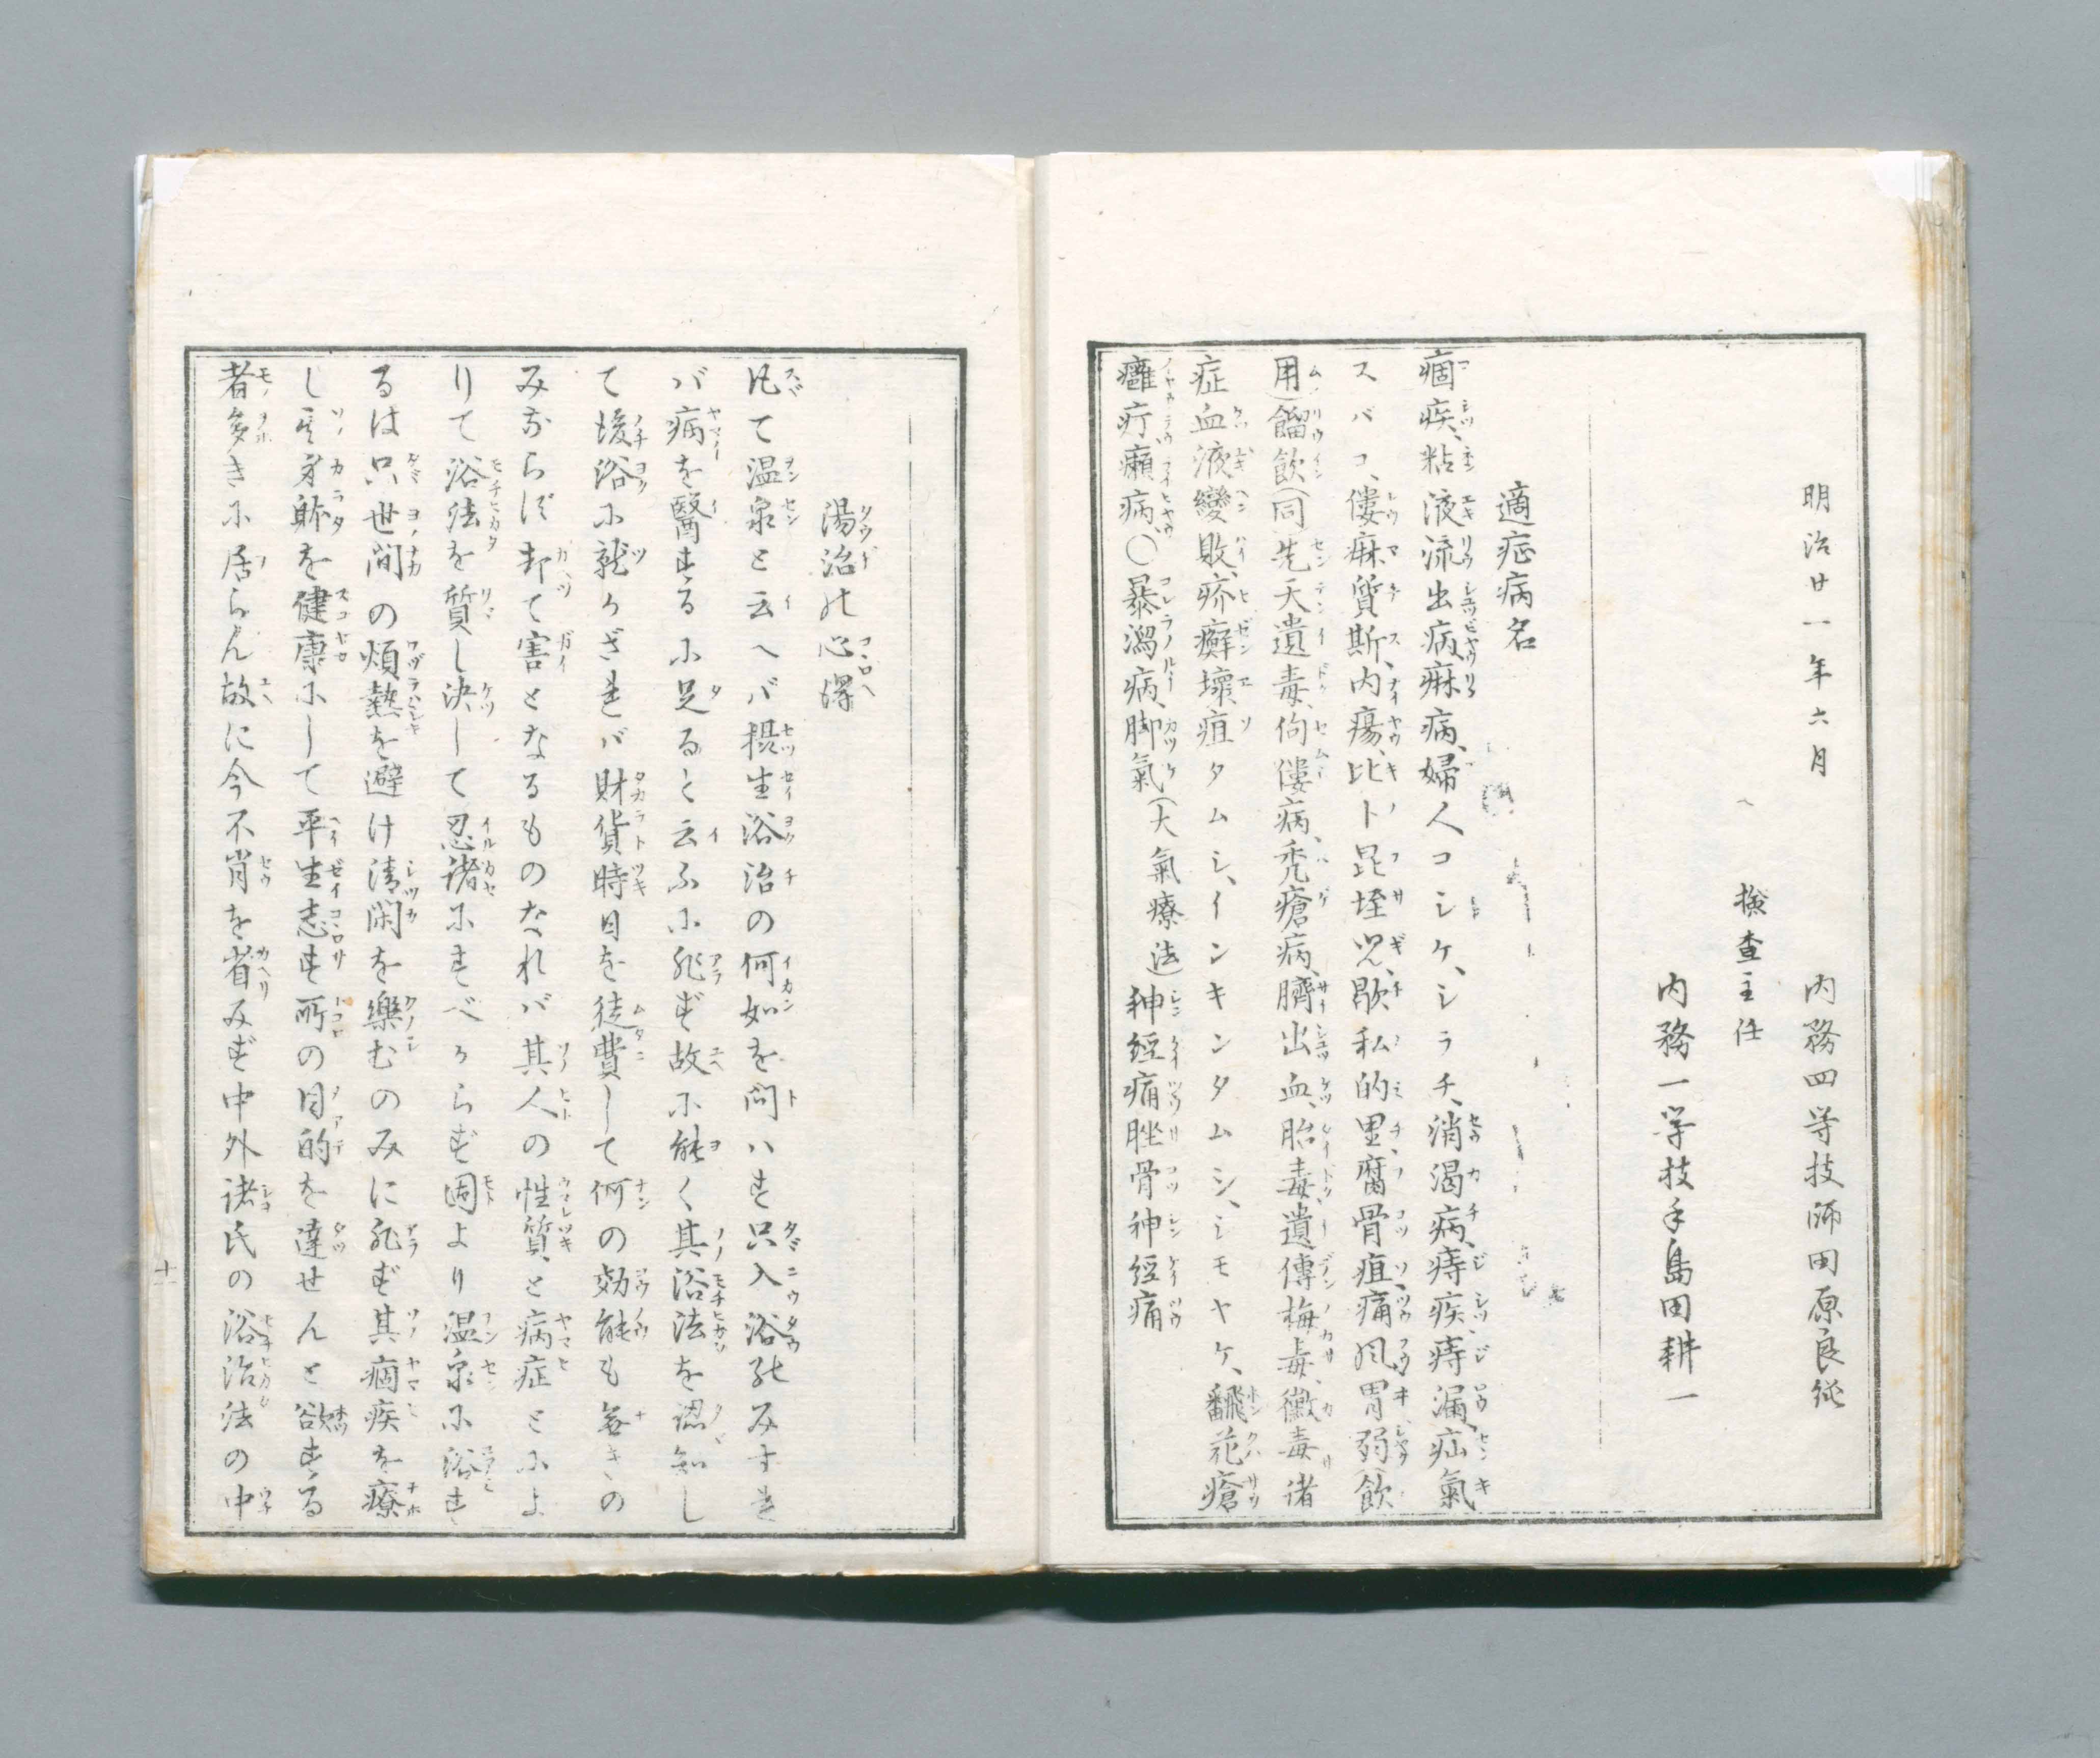 明治廿一年六月
内務四等技師田原良純
検査主任
内務一等技手島田耕一
適症病名
痼疾、粘液流出病、痳病、婦人コシケ、シラチ、消渇病、痔疾、痔漏、疝氣
スバコ、僂麻質斯、内瘍、比卜昆垤児、歇私的里、腐骨疽、痛風、胃弱(飲
用)餾飲(同先天遺毒、佝僂病、禿瘡病、臍出血、胎毒、遺傳梅毒、黴毒諸
症血液變敗、疥癬、壞疽タムシ、インキンタムシ、シモヤケ、飜花瘡
癰疔癩病、〇暴瀉病、脚氣(大氣療法)神經痛脞骨神經痛
湯治の心得
凡て温泉と云へバ摂生浴治の何如を問ハず只入浴のみすれ
バ病を醫するに足ると云ふに非ず故に能く其浴法を認知し
て後浴に就かざれバ財貨時日を徒費して何の効能も無きの
みならず却て害となるものなれバ其人の性質と病症とによ
りて浴法を質し決して忍諸にすべからず固より温泉に浴す
るは只世間の煩熱を避け清閑を樂むのみに非ず其痼疾を療
し其身躰を健康にして平生志す所の目的を達せんと欲する
者多きに居らん故に今不肖を省みず中外諸氏の浴治法の中
十一